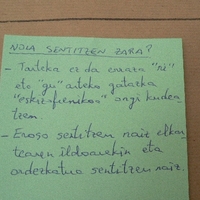 NOLA SENTITZEN ZARA?
- Tarteka ez da erraza "ni"
eta "gu" arteko gatazka
"eskizofrenikoa" ongi kudea
tzen.
- Eroso sentitzen naiz elkar
tearen ildoarekin eta
ordezkatua sentitzen naiz.